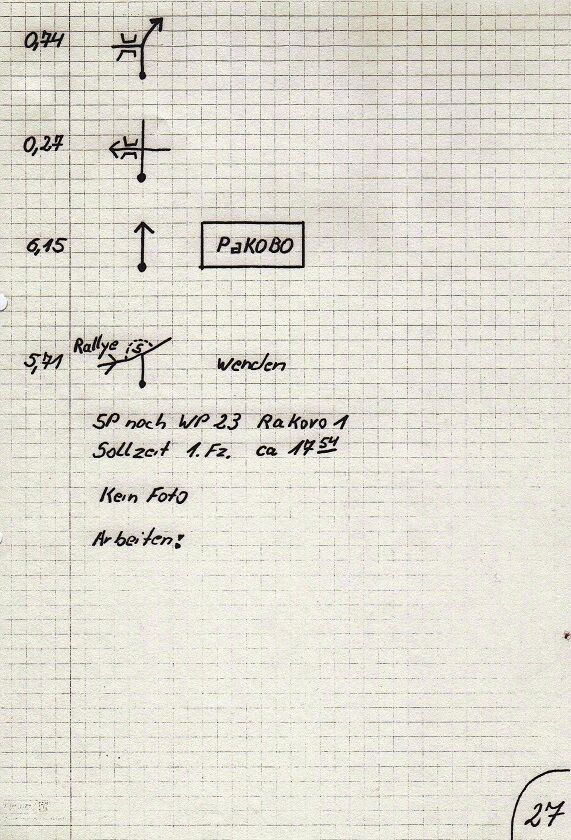 0,74
0,27
6,15 PaKOBO
Rallye S
5,71 Wenden
SP nach WP 23 Rakovo 1
Sollzeit 1. Fz. ca 17 54
Kein Foto
Arbeiten:
27